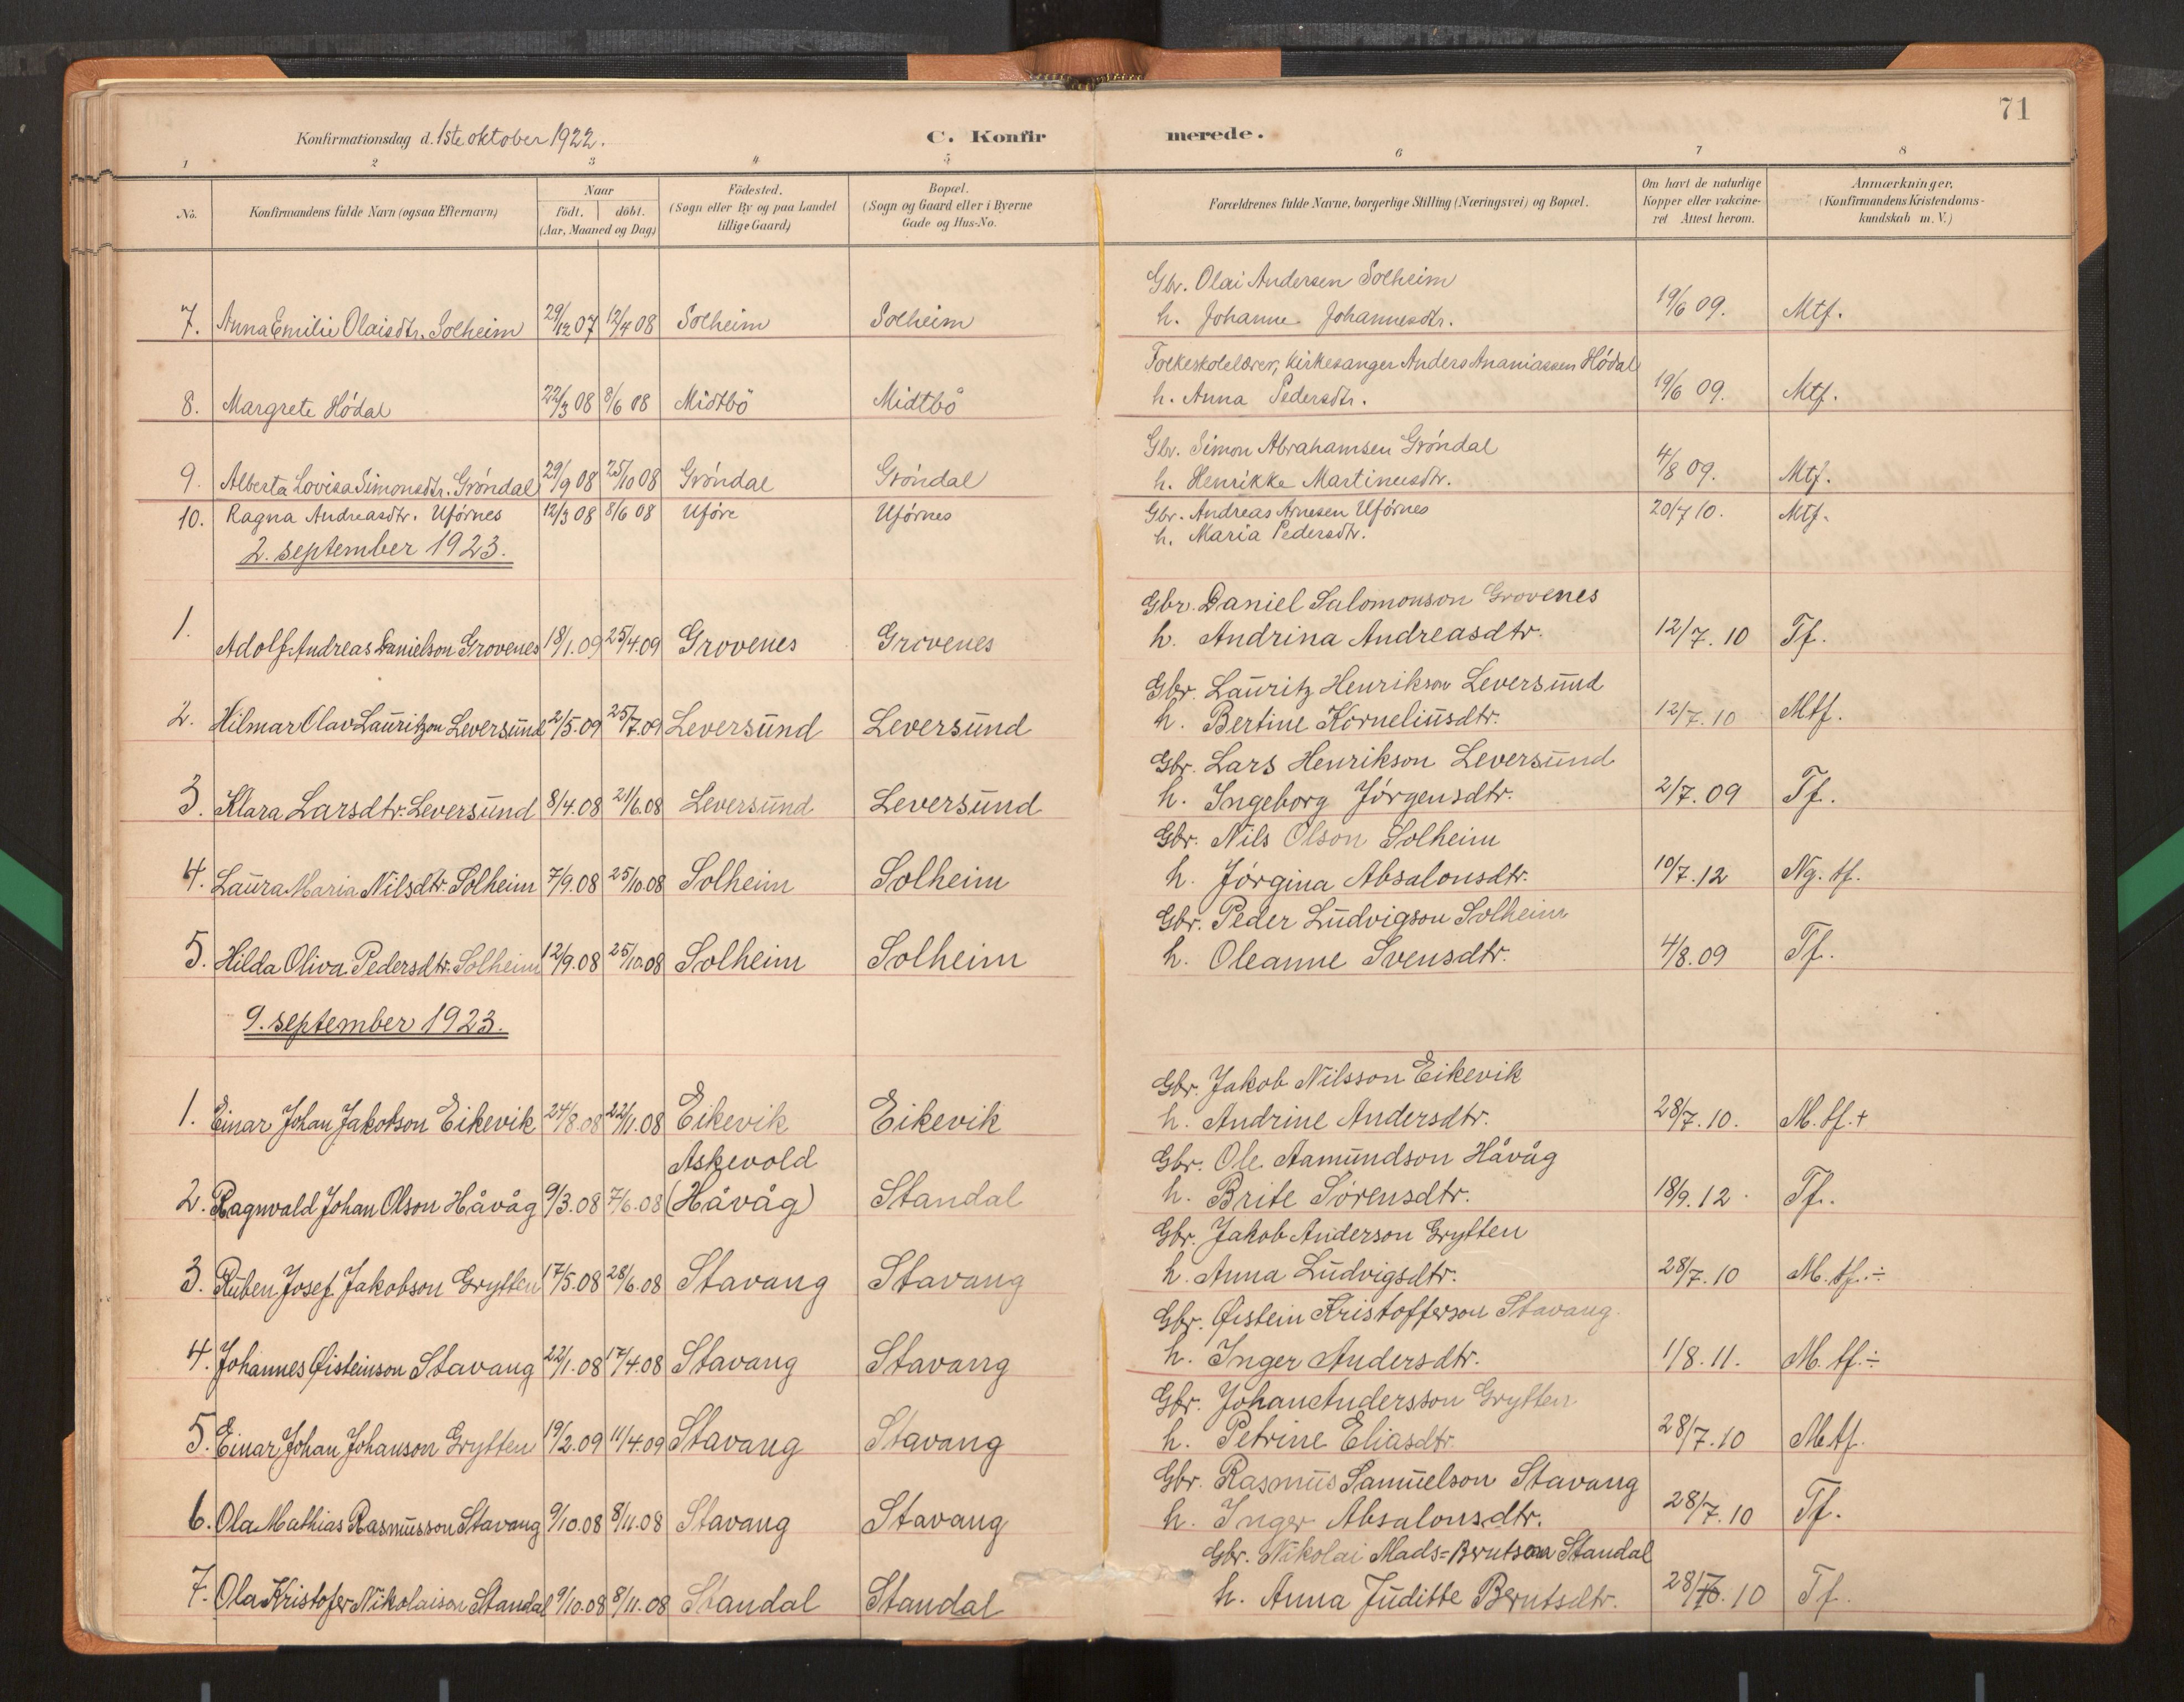 71
Konfirmationsdag d. 1ste oktober 1922.
C. Konfirmerede.
1 2 3 4 5 6 7 8
No. Konfirmandens fulde Navn (ogsaa Efternavn) Naar födt. döbt. (Aar, Maaned og Dag) Födested. (Sogn eller By og paa Landet tillige Gaard) Bopæl. (Sogn og Gaard eller i Byerne Gade og Hus-No. Forældrenes fulde Navne, borgerlige Stilling (Næringsvei) og Bopæl. Om havt de naturlige Kopper eller vakcineret Attest herom. Anmærkninger. (Konfirmandens Kristendomskundskab m. V.)
Gbr. Olai Andersen Solheim
7. Anna Emilie Olaisdtr. Solheim 29/12 07 12/4 08 Solheim Solheim h. Johanne Johannesdtr. 19/6 09. Mtf.
Folkeskolelærer, kirkesanger Anders Ananiassen Hödal
8. Margrete Hödal 22/3 08 8/6 08 Midtbö Midtbö h. Anna Pedersdtr. 19/6 09. Mtf.
Gbr. Simon Abrahamsen Gröndal
9. Alberta Lovisa Simonsdtr. Gröndal 29/9 08 25/10 08 Gröndal Gröndal h. Henrikke Martinusdtr. 4/8 09. Mtf.
10. Ragna Andreasdtr. Uförnes 12/3 08 8/6 08 Uföre Uförnes Gbr. Andreas Arnesen Uförnes 20/7 10. Mtf.
h. Maria Pedersdtr.
2. september 1923.
Gbr. Daniel Salomonson Grovenes
1. Adolf Andreas Danielson Grovenes 18/1.09 25/4.09 Grovenes Grovenes h. Andrina Andreasdtr. 12/7.10 Tf.
Gbr. Lauritz Henrikson Leversund
2. Hilmar Olav Lauritzon Leversund 2/5.09 25/7.09 Leversund Leversund h. Bertine Korneliusdtr. 12/7.10 Mtf.
Gbr. Lars Henrikson Leversund
3. Klara Larsdtr. Leversund 8/4.08 21/6.08 Leversund Leversund h. Ingeborg Jörgensdtr. 2/7.09 Tf.
Gbr. Nils Olson Solheim
4. Laura Maria Nilsdtr. Solheim 7/9.08 25/10.08 Solheim Solheim h. Jörgina Absalonsdtr. 10/7.12 Ng. tf.
Gbr. Peder Ludvigson Solheim
5. Hilda Oliva Pedersdtr. Solheim 12/9.08 25/10.08 Solheim Solheim h. Oleanne Svensdtr. 4/8.09 Tf.
9. september 1923.
Gbr. Jakob Nilsson Eikevik
1. Einar Johan Jakobson Eikevik 24/8.08 22/11.08 Eikevik Eikevik h. Andrine Andersdtr. 28/7.10. M. tf. +
Askevold Gbr. Ole Aamundson Håvåg
2. Ragnvald Johan Olson Håvåg 9/3.08 7/6.08 (Håvåg) Standal h. Brite Sörensdtr. 18/9.12. Tf.
Gbr. Jakob Anderson Grytten
3. Ruben Josef Jakobson Grytten 17/5.08 28/6.08 Stavang Stavang h. Anna Ludvigsdtr. 28/7.10 M. tf. ÷
Gbr. Øistein Kristofferson Stavang
4. Johannes Øisteinson Stavang 22/1.08 17/4.08 Stavang Stavang h. Inger Andersdtr. 1/8.11. M. tf. ÷
Gbr. Johan Andersson Grytten
5. Einar Johan Johanson Grytten 19/2.09 11/4.09 Stavang Stavang h. Petrine Eliasdtr. 28/7.10 Mtf.
Gbr. Rasmus Samuelson Stavang
6. Ola Mathias Rasmusson Stavang 9/10.08 8/11.08 Stavang Stavang h. Inger Absalonsdtr. 28/7.10 Tf.
Gbr. Nikolai Mads=Berntson Standal
7. Ola Kristofer Nikolaison Standal 9/10.08 8/11.08 Standal Standal h. Anna Juditte Berntsdtr. 28/7.10 Tf.